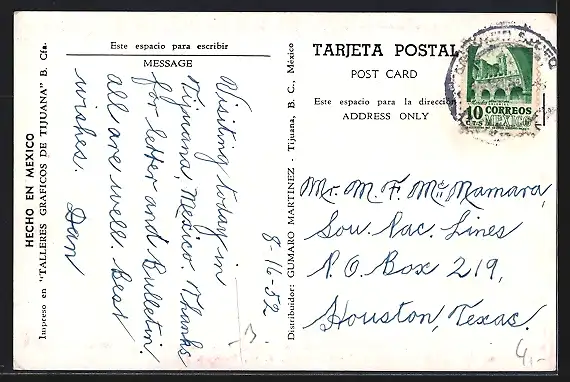 HECHO EN MEXICO
Impreso en "TALLERES GRAFICOS DE TIJUANA" B. Cfa.
Este espacio para escribir
MESSAGE
8-16-52
Visiting today in
Tijuana, Mexico. Thanks
for letter and Bulletin.
all are well. Best
wishes. Dan
Distribuidor: GUMARO MARTINEZ - Tijuana, B. C., México
TARJETA POSTAL
POST CARD
Este espacio para la dirección
ADDRESS ONLY
10 CORREOS
CTS MEXICO
Mr. M. F. McNamara,
Sou. Pac. Lines
P.O. Box 219,
Houston, Texas.
4,-